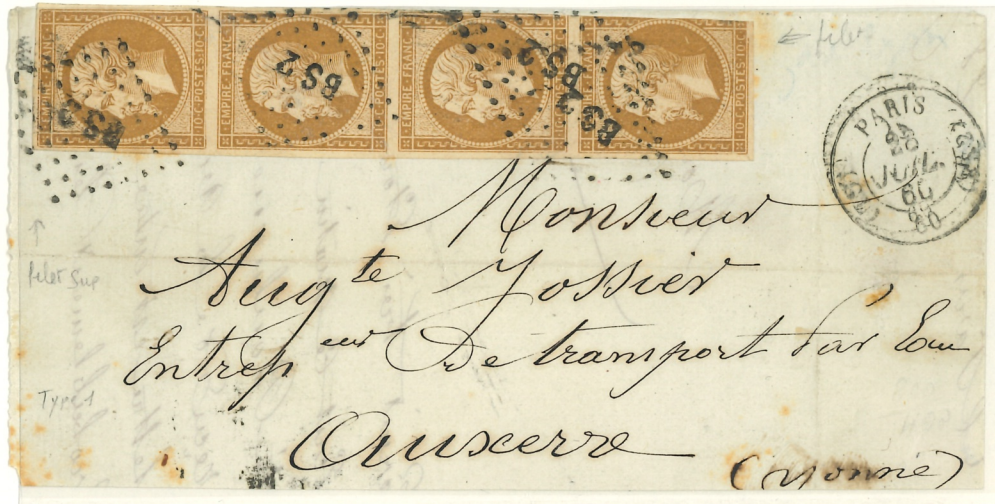 EMPIRE FRANC
10·C·POSTES·10·C
EMPIRE FRANC
10·C·POSTES·10·C
EMPIRE FRANC
10·C·POSTES·10·C
EMPIRE FRANC
10·C·POSTES·10·C
BS2
BS2
BS2
BS2
← filet
PARIS
JUIL.
60
Monsieur
Aug te Jossier
filet sup
Entrep eur De transport Par Eau
Type 1
Auxerre
(Yonne)